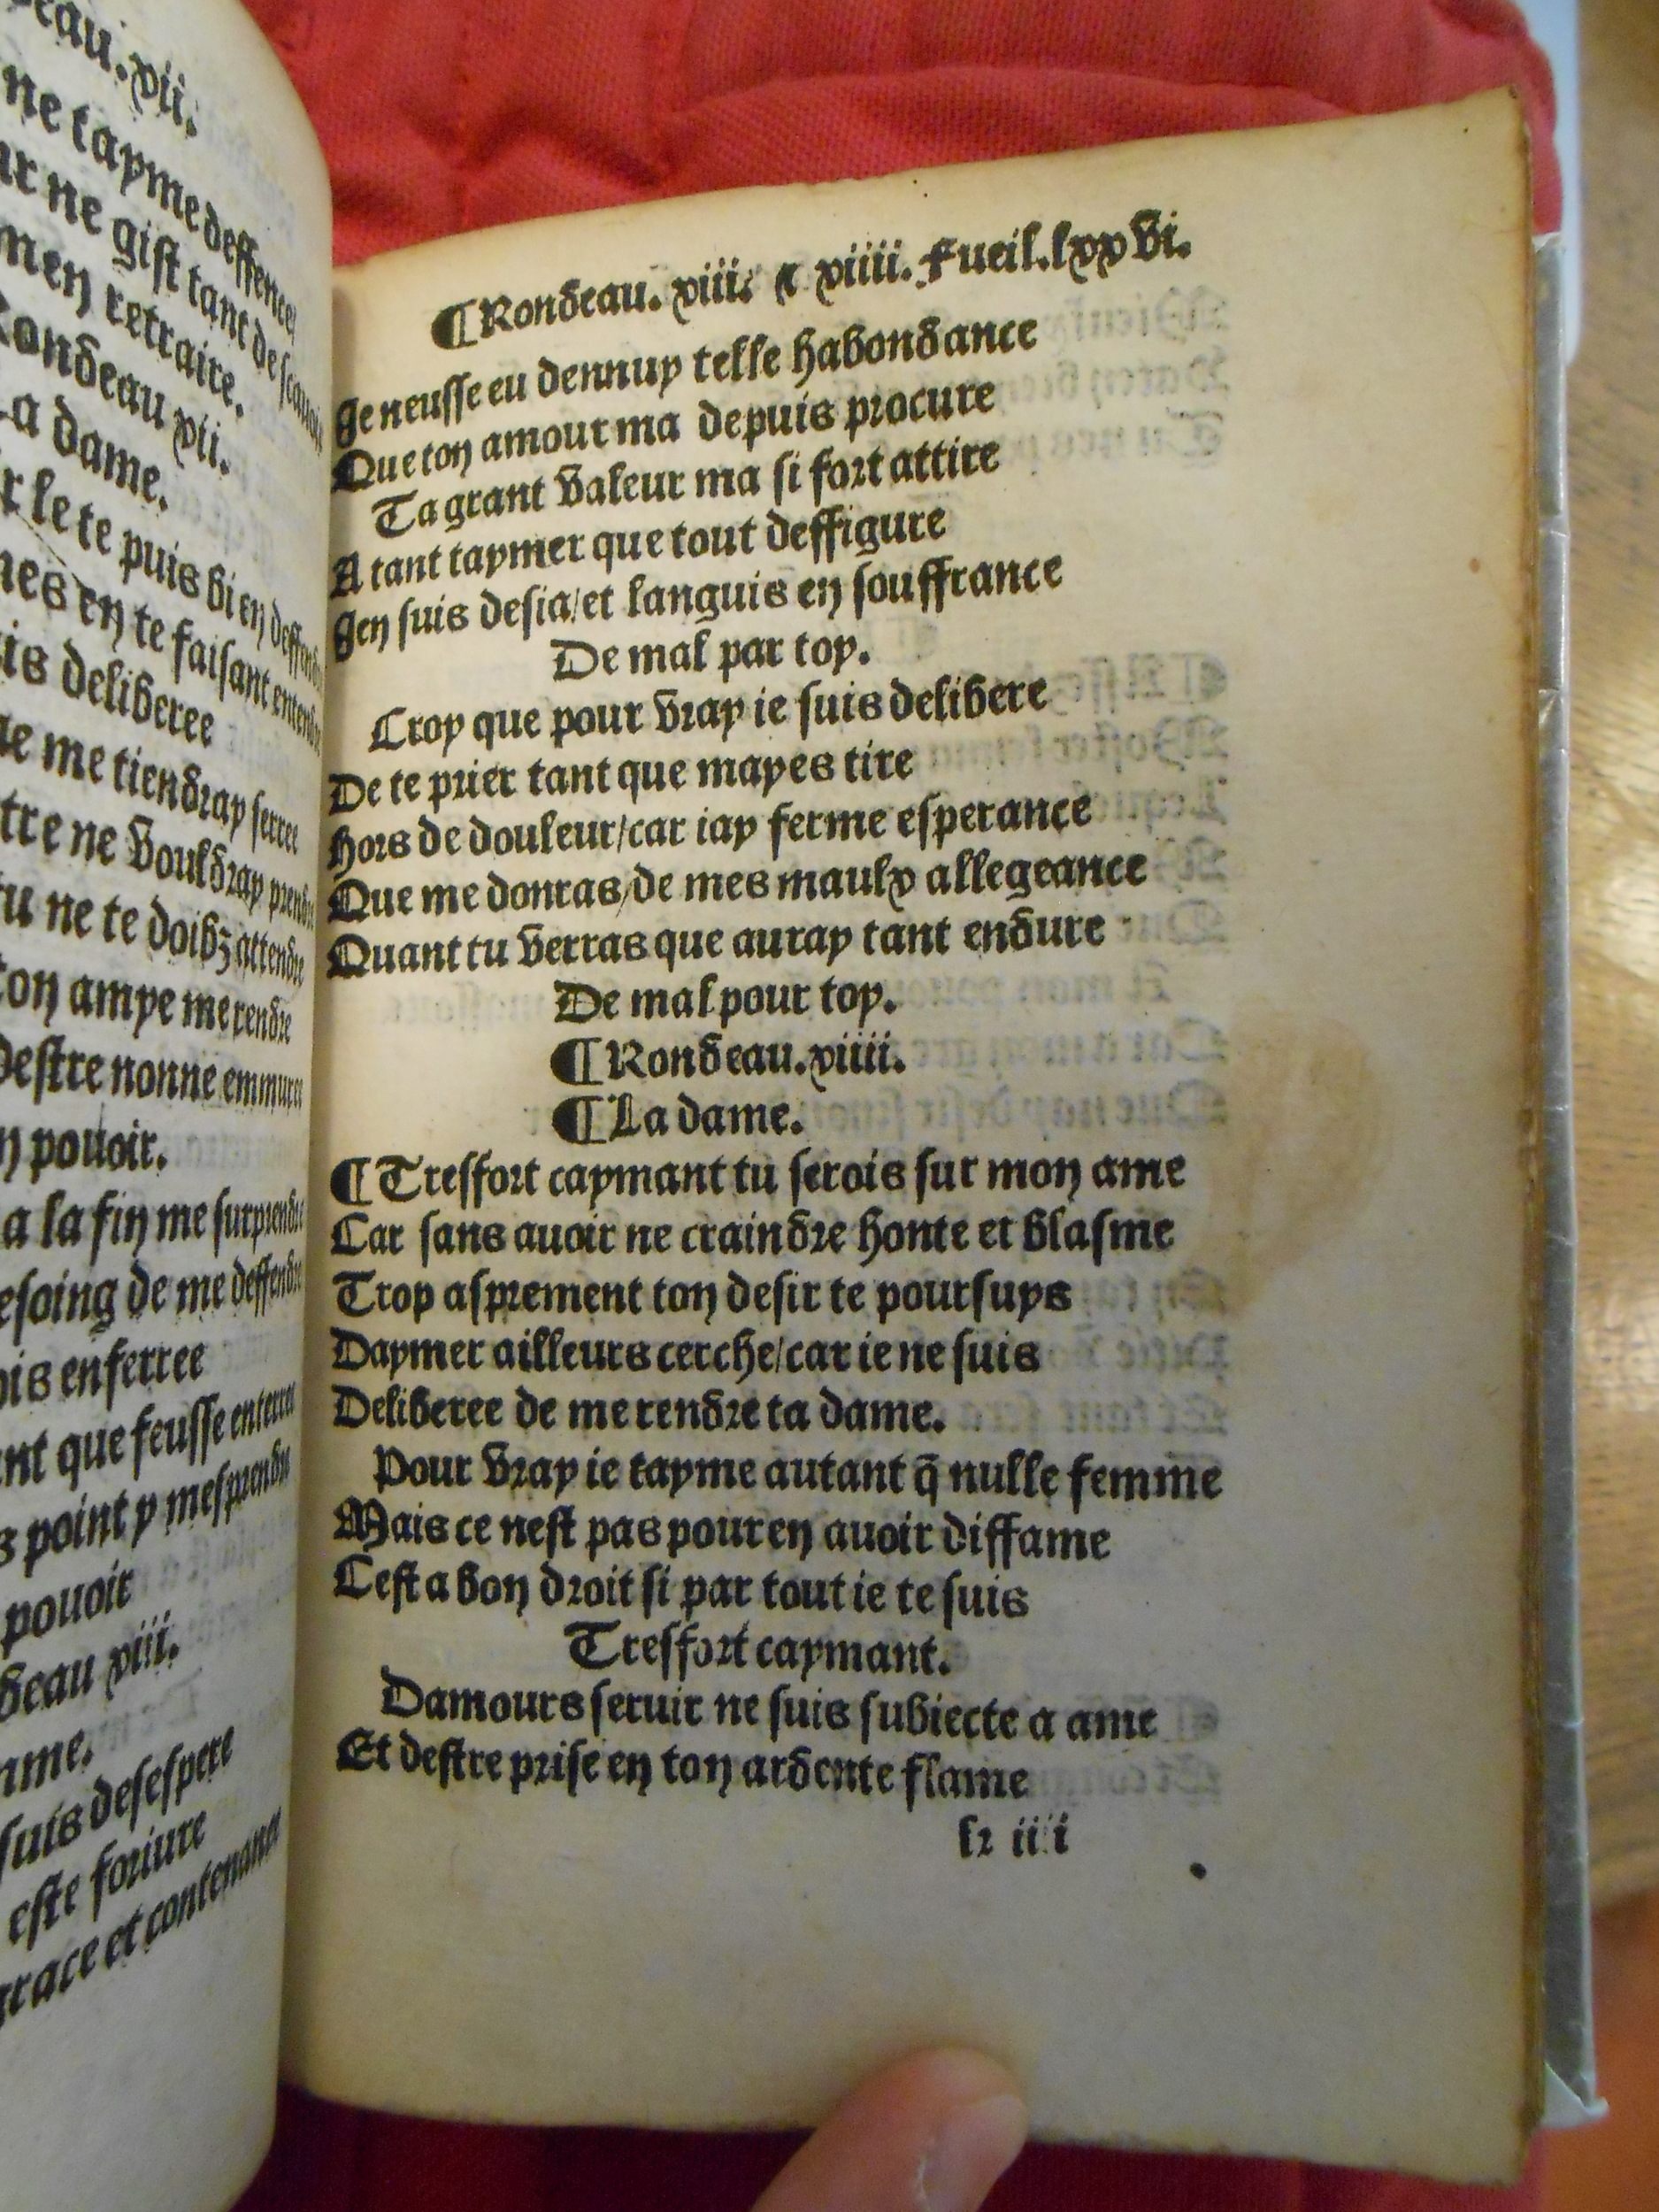 eau.xii.
ne taymedeffence
ne gist tant de scauoir
men retraire.
ondeau xii.
a dame.
le te puis bien
nes en te faisant entendre
is deliberee
me tiendray serree
tre ne vouldray prendre
tu ne te doibz attendre
ton amye me rendre
Destre nonne emmuree
pouoir.
a la fin me surprendre
esoing de me deffendre
ois enferree
nt que feusse enterree
point y mesprendre
pouoir
deau xiii.
ame.
suis desespere
este foriure
grace et contenance
¶Rondeau. xiii. ⁊ xiiii. Fueil.lxxvi.
Ie neusse eu dennuy telle habondance
Que ton amour ma depuis procure
Ta grant valeur ma si fort attire
A tant taymer que tout deffigure
Ien suis desia/et languis en souffrance
De mal par toy.
Croy que pour vray ie suis delibere
De te prier tant que mayes tire
Hors de douleur/car iay ferme esperance
Que me donras/de mes maulx allegeance
Quant tu verras que auray tant endure
De mal pour toy.
¶Rondeau.xiiii.
¶La dame.
¶Tresfort caymant tu serois sur mon ame
Car sans auoir ne craindre honte et blasme
Trop asprement ton desir te poursuys
Daymer ailleurs cerche/car ie ne suis
Deliberee de me rendre ta dame.
Pour vray ie tayme autant q̄ nulle femme
Mais ce nest pas pour en auoir diffame
Cest a bon droit si par tout ie te suis
Tresfort caymant.
Damours seruir ne suis subiecte a ame
Et destre prise en ton ardente flame
k iiii